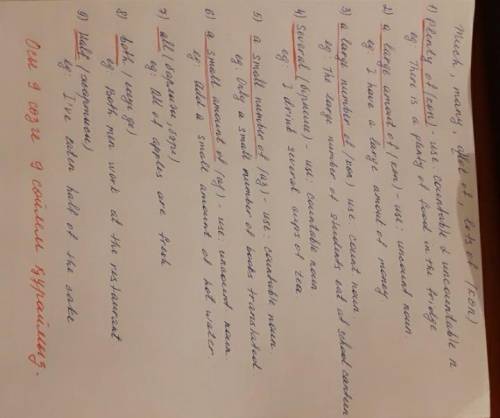 Much, many, alot of, lots of (көп)
1) Plenty of (көп) use countable & uncountable n
eg: There is a plenty of food in the fridge
2) a large amount of (көп) - use: uncount noun
eg: I have a large amount of money
3) a large number of (көп) use count noun
eg: The large number of students eat at school canteen
4) Several (бірнеше) - use countable noun
eg: I drink several cups of tea
5) a small number of (аз) - use: countable noun
eg: Only a small number of books translated
6) a small amount of (аз) - use: uncount noun.
eg: Add a small amount of hot water
7) all (барлығы, бәрі)
eg: All of apples are fresh
8) both (екеуі де)
eg: Both men work at the restaurant
9) Half (жартысы)
eg: I've eaten half of the cake
Осы 9 сөзге 9 сөйлем құраймыз.